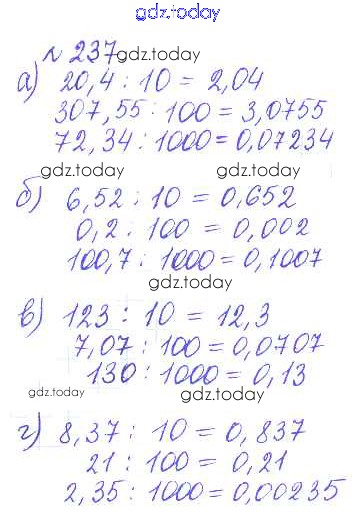 gdz.today
№ 237
gdz.today
а) 20,4 : 10 = 2,04
307,55 : 100 = 3,0755
72,34 : 1000 = 0,07234
gdz.today
gdz.today
б) 6,52 : 10 = 0,652
0,2 : 100 = 0,002
100,7 : 1000 = 0,1007
gdz.today
в) 123 : 10 = 12,3
7,07 : 100 = 0,0707
130 : 1000 = 0,13
gdz.today
gdz.today
г) 8,37 : 10 = 0,837
21 : 100 = 0,21
2,35 : 1000 = 0,00235
gdz.today